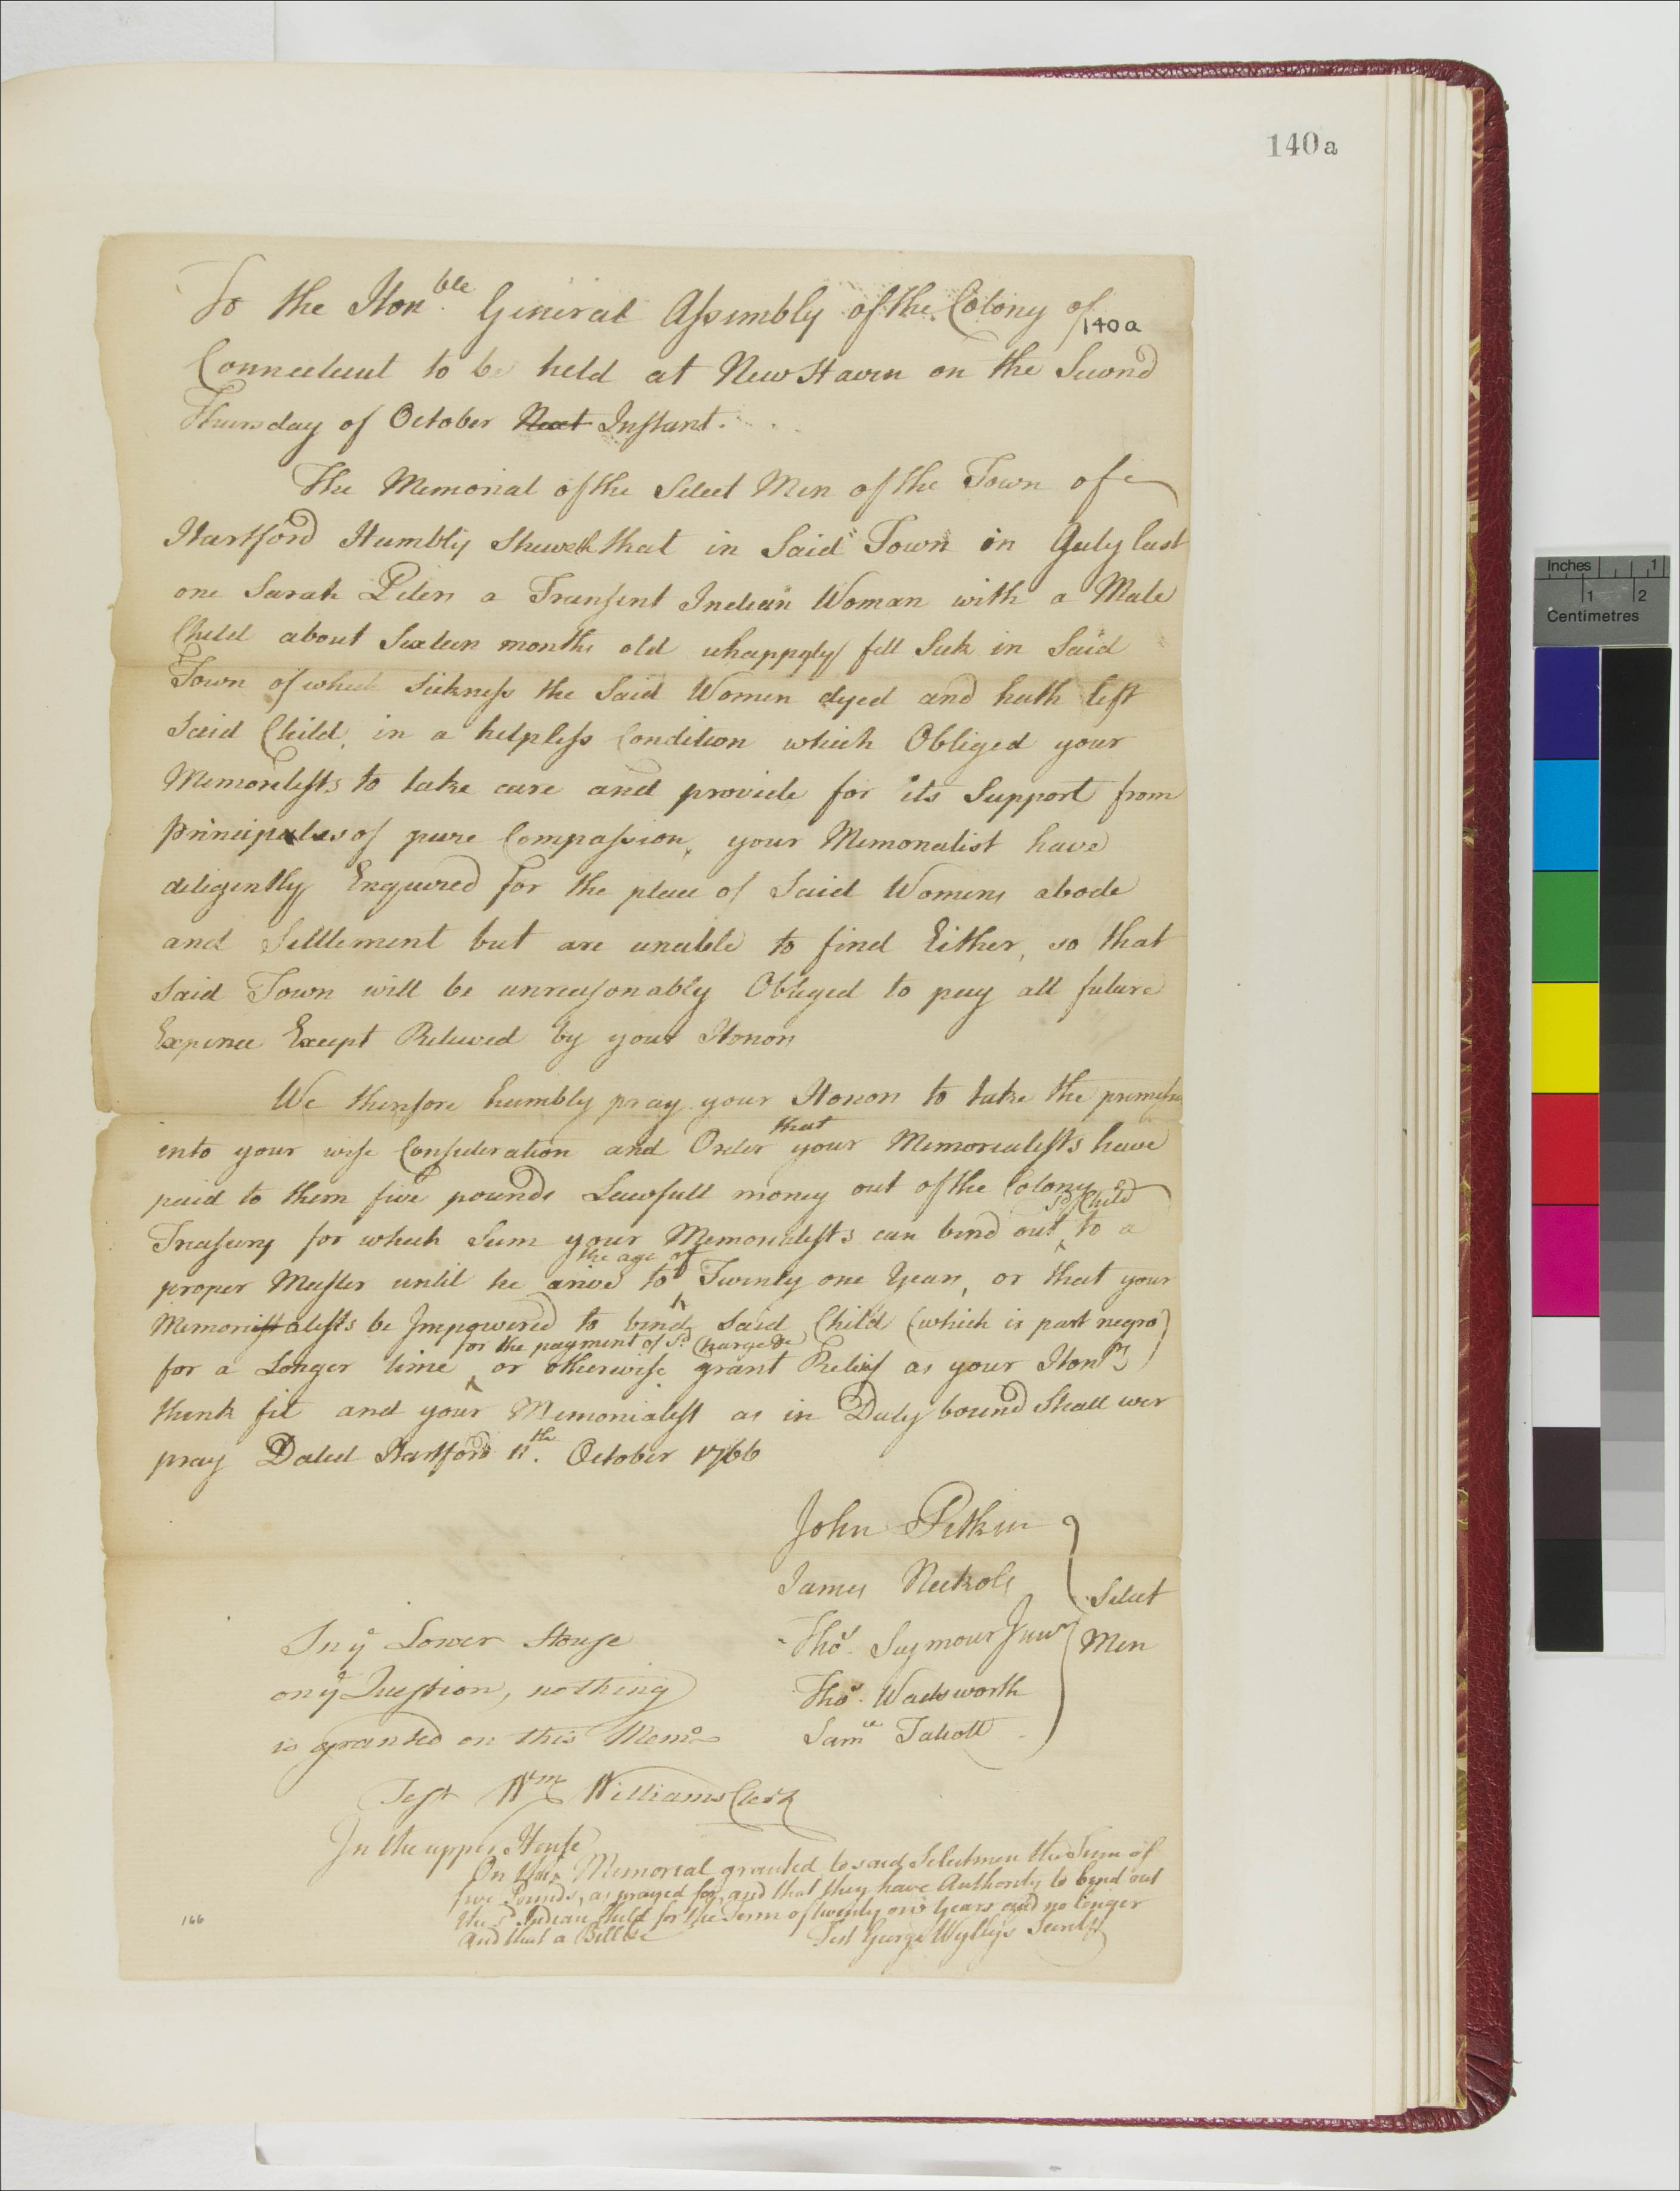 140a
To the Honble General Assembly of the Colony of
140a
Connecticut to be held at New Haven on the Second
Thursday of October Next Instant.
The Memorial of the Select Men of the Town of
Hartford Humbly Sheweth that in Said Town in July last
one Sarah Peters a Transient Indian Woman with a Male
Child about Sixteen months old unhappyly fell Sick in Said
Town of which Sickness the Said Women dyed and hath left
Said Child in a helpless Condition which Obliged your
Memorilists to take care and provide for its Support from
principales of pure Compassion, your Memorialist have
diligently Enquired for the place of Said Womens abode
and Settlement but are unable to find Either, so that
Said Town will be unreasonably Obliged to pay all future
Expence Except Relieved by your Honors
We therefore humbly pray your Honors to take the premises
into your wise Consideration and Order that your Memorialists have
paid to them five pounds Lawfull money out of the Colony
Treasury for which Sum your Memorialists can bind out sd Child to a
proper Master until he arive to the age of Twenty one Years, or that your
Memoristalists be Impowered to bind Said Child (which is part negro)
for a Longer time for the payment of sd Charge &c or otherwise grant Relief as your Honrs
think fit and your Memorialist as in Duty bound Shall ever
pray Dated Hartford 11th. October 1766
John Pitkin
James Nickols
Thos. Seymour Junr
Thos. Wadsworth
Samll Talcott
Select
Men
In ye Lower House
on ye Question, nothing
is granted on this Memo
Test Wm Williams Clerk
In the upper House
On this Memorial granted to said Selectmen the Sum of
five Pounds, as prayed for, and that they have Authority to bind out
the sd Indian Child for the Term of twenty one Years and no longer
And that a Bill &c
Test George Wyllys Secrety
166
Inches 1
1 2
Centimetres